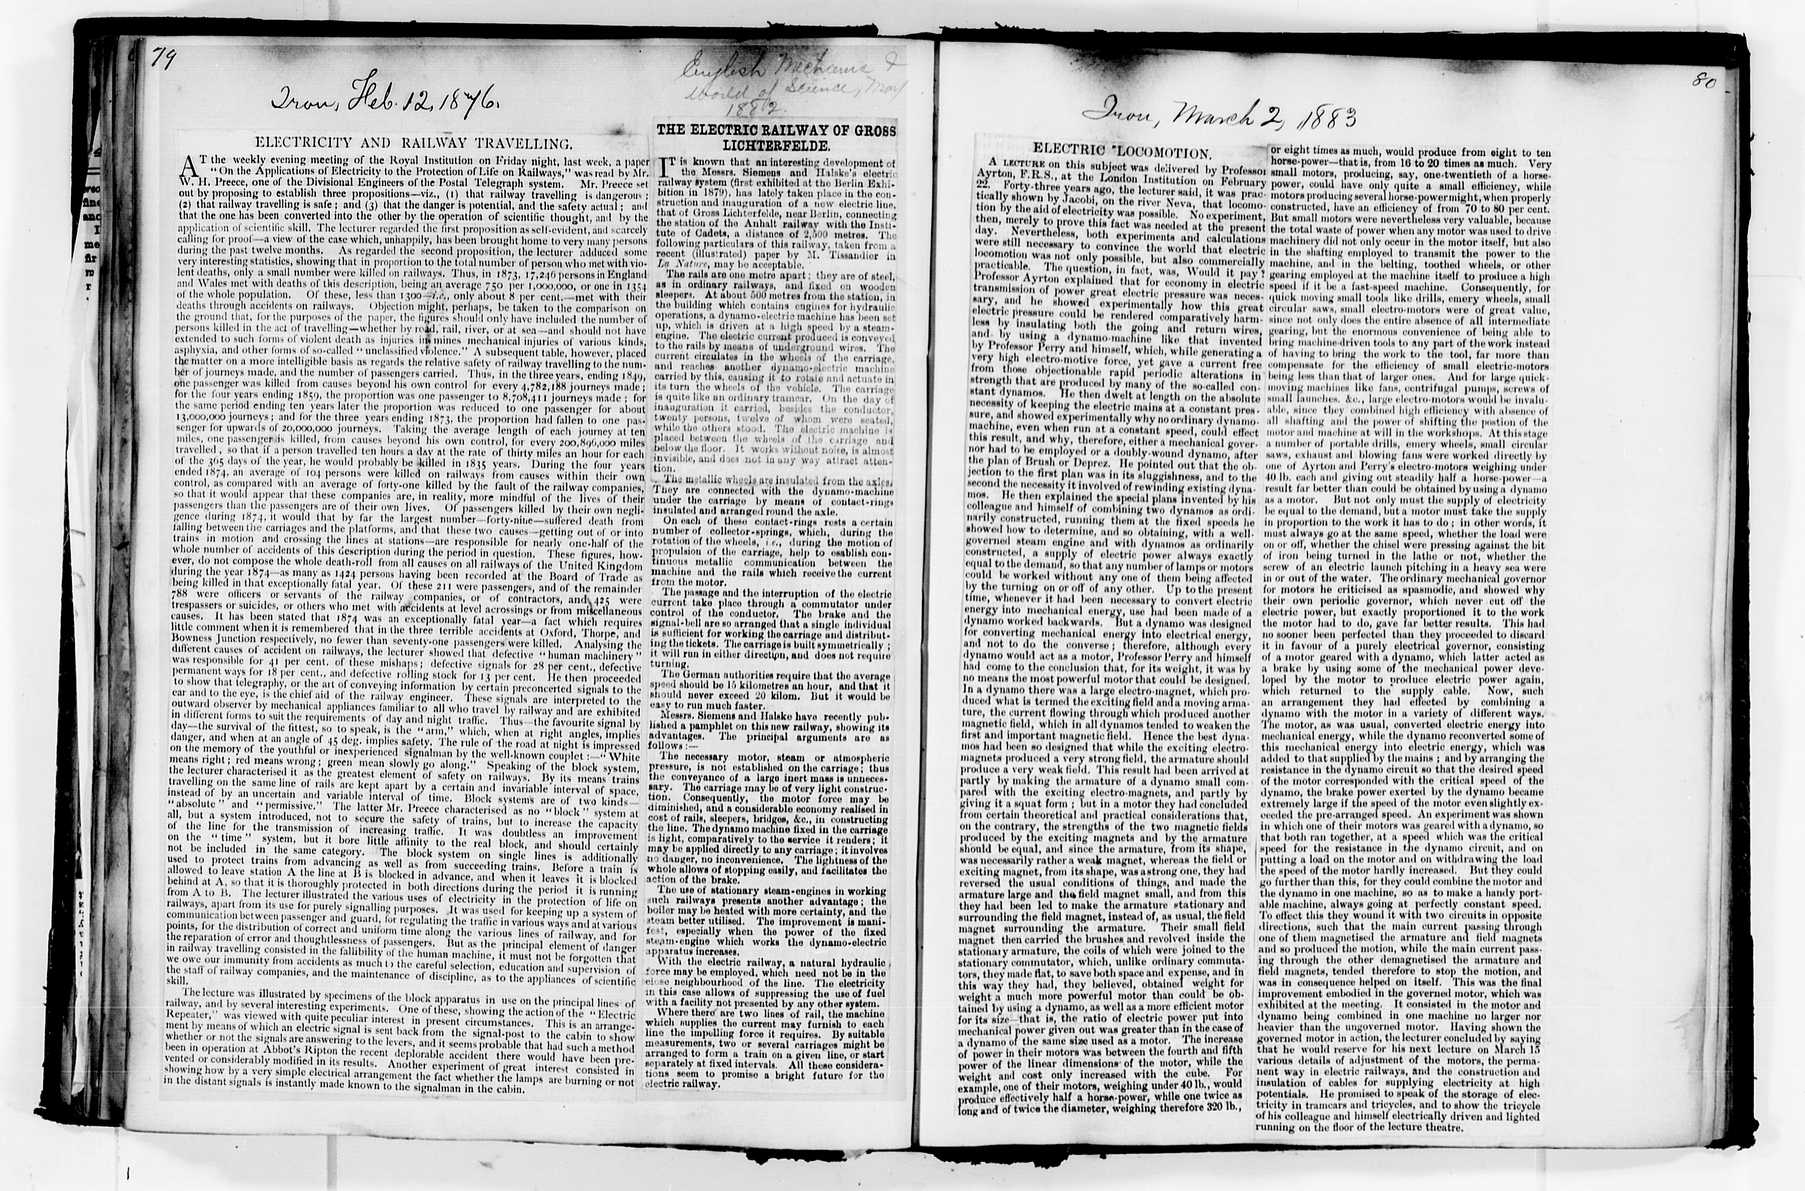 79
Iron, Feb. 12, 1876.
ELECTRICITY AND RAILWAY TRAVELLING.
AT the weekly evening meeting of the Royal Institution on Friday night, last week, a paper
"On the Applications of Electricity to the Protection of Life on Railways," was read by Mr.
W. H. Preece, one of the Divisional Engineers of the Postal Telegraph system. Mr. Preece set
out by proposing to establish three propositions—viz., (1) that railway travelling is dangerous;
(2) that railway travelling is safe; and (3) that the danger is potential, and the safety actual; and
that the one has been converted into the other by the operation of scientific thought, and by the
application of scientific skill. The lecturer regarded the first proposition as self-evident, and scarcely
calling for proof—a view of the case which, unhappily, has been brought home to very many persons
during the past twelve months. As regarded the second proposition, the lecturer adduced some
very interesting statistics, showing that in proportion to the total number of persons who met with vio-
lent deaths, only a small number were killed on railways. Thus, in 1873, 17,246 persons in England
and Wales met with deaths of this description, being an average 750 per 1,000,000, or one in 1354
of the whole population. Of these, less than 1300—i.e., only about 8 per cent.—met with their
deaths through accidents on railways. Objection might, perhaps, be taken to the comparison on
the ground that, for the purposes of the paper, the figures should only have included the number of
persons killed in the act of travelling—whether by road, rail, river, or at sea—and should not have
extended to such forms of violent death as injuries in mines mechanical injuries of various kinds,
asphyxia, and other forms of so-called "unclassified violence." A subsequent table, however, placed
the matter on a more intelligible basis as regards the relative safety of railway travelling to the num-
ber of journeys made, and the number of passengers carried. Thus, in the three years, ending 1849,
one passenger was killed from causes beyond his own control for every 4,782,188 journeys made;
for the four years ending 1859, the proportion was one passenger to 8,708,411 journeys made; for
the same period ending ten years later the proportion was reduced to one passenger for about
13,000,000 journeys; and for the three years ending 1873, the proportion had fallen to one pas-
senger for upwards of 20,000,000 journeys. Taking the average length of each journey at ten
miles, one passenger is killed, from causes beyond his own control, for every 200,896,000 miles
travelled, so that if a person travelled ten hours a day at the rate of thirty miles an hour for each
of the 365 days of the year, he would probably be killed in 1835 years. During the four years
ended 1874, an average of 104 persons were killed on railways from causes within their own
control, as compared with an average of forty-one killed by the fault of the railway companies,
so that it would appear that these companies are, in reality, more mindful of the lives of their
passengers than the passengers are of their own lives. Of passengers killed by their own negli-
gence during 1874, it would that by far the largest number—forty-nine—suffered death from
falling between the carriages and the platforms, and that these two causes—getting out of or into
trains in motion and crossing the lines at stations—are responsible for nearly one-half of the
whole number of accidents of this description during the period in question. These figures, how-
ever, do not compose the whole death-roll from all causes on all railways of the United Kingdom
during the year 1874—as many as 1424 persons having been recorded at the Board of Trade as
being killed in that exceptionally fatal year. Of these 211 were passengers, and of the remainder
788 were officers or servants of the railway companies, or of contractors, and 425 were
trespassers or suicides, or others who met with accidents at level acrossings or from miscellaneous
causes. It has been stated that 1874 was an exceptionally fatal year—a fact which requires
little comment when it is remembered that in the three terrible accidents at Oxford, Thorpe, and
Bowness Junction respectively, no fewer than seventy-one passengers were killed. Analysing the
different causes of accident on railways, the lecturer showed that defective "human machinery"
was responsible for 41 per cent. of these mishaps; defective signals for 28 per cent., defective
permanent ways for 18 per cent., and defective rolling stock for 13 per cent. He then proceeded
to show that telegraphy, or the art of conveying information by certain preconcerted signals to the
ear and to the eye, is the chief aid of the railway engineer. These signals are interpreted to the
outward observer by mechanical appliances familiar to all who travel by railway and are exhibited
in different forms to suit the requirements of day and night traffic. Thus—the favourite signal by
day—the survival of the fittest, so to speak, is the "arm," which, when at right angles, implies
danger, and when at an angle of 45 deg. implies safety. The rule of the road at night is impressed
on the memory of the youthful or inexperienced signalman by the well-known couplet:—"White
means right; red means wrong; green mean slowly go along." Speaking of the block system,
the lecturer characterised it as the greatest element of safety on railways. By its means trains
travelling on the same line of rails are kept apart by a certain and invariable interval of space,
instead of by an uncertain and variable interval of time. Block systems are of two kinds—
"absolute" and "permissive." The latter Mr. Preece characterised as no "block" system at
all, but a system introduced, not to secure the safety of trains, but to increase the capacity
of the line for the transmission of increasing traffic. It was doubtless an improvement
on the "time" system, but it bore little affinity to the real block, and should certainly
not be included in the same category. The block system on single lines is additionally
used to protect trains from advancing as well as from succeeding trains. Before a train is
allowed to leave station A the line at B is blocked in advance, and when it leaves it is blocked
behind at A, so that it is thoroughly protected in both directions during the period it is running
from A to B. The lecturer illustrated the various uses of electricity in the protection of life on
railways, apart from its use for purely signalling purposes. It was used for keeping up a system of
communication between passenger and guard, for regulating the traffic in various ways and at various
points, for the distribution of correct and uniform time along the various lines of railway, and for
the reparation of error and thoughtlessness of passengers. But as the principal element of danger
in railway travelling consisted in the fallibility of the human machine, it must not be forgotten that
we owe our immunity from accidents as much to the careful selection, education and supervision of
the staff of railway companies, and the maintenance of discipline, as to the appliances of scientific
skill.
The lecture was illustrated by specimens of the block apparatus in use on the principal lines of
railway, and by several interesting experiments. One of these, showing the action of the "Electric
Repeater," was viewed with quite peculiar interest in present circumstances. This is an arrange-
ment by means of which an electric signal is sent back from the signal-post to the cabin to show
whether or not the signals are answering to the levers, and it seems probable that had such a method
been in operation at Abbot's Ripton the recent deplorable accident there would have been pre-
vented or considerably modified in its results. Another experiment of great interest consisted in
showing how by a very simple electrical arrangement the fact whether the lamps are burning or not
in the distant signals is instantly made known to the signalman in the cabin.
English Mechanic &
World of Science, May
1882.
THE ELECTRIC RAILWAY OF GROSS
LICHTERFELDE.
IT is known that an interesting development of
the Messrs. Siemens and Halske's electric
railway system (first exhibited at the Berlin Exhi-
bition in 1879), has lately taken place in the con-
struction and inauguration of a new electric line,
that of Gross Lichterfelde, near Berlin, connecting
the station of the Anhalt railway with the Insti-
tute of Cadets, a distance of 2,500 metres. The
following particulars of this railway, taken from a
recent (illustrated) paper by M. Tissandier in
La Nature, may be acceptable.
The rails are one metre apart; they are of steel,
as in ordinary railways, and fixed on wooden
sleepers. At about 500 metres from the station, in
the building which contains engines for hydraulic
operations, a dynamo-electric machine has been set
up, which is driven at a high speed by a steam-
engine. The electric current produced is conveyed
to the rails by means of underground wires. The
current circulates in the wheels of the carriage,
and reaches another dynamo-electric machine
carried by this, causing it to rotate and actuate in
its turn the wheels of the vehicle. The carriage
is quite like an ordinary tramcar. On the day of
inauguration it carried, besides the conductor,
twenty persons, twelve of whom were seated,
while the others stood. The electric machine is
placed between the wheels of the carriage and
below the floor. It works without noise, is almost
invisible, and does not in any way attract atten-
tion.
The metallic wheels are insulated from the axles.
They are connected with the dynamo-machine
under the carriage by means of contact-rings
insulated and arranged round the axle.
On each of these contact-rings rests a certain
number of collector-springs, which, during the
rotation of the wheels, i.e., during the motion of
propulsion of the carriage, help to esablish con-
tinuous metallic communication between the
machine and the rails which receive the current
from the motor.
The passage and the interruption of the electric
current take place through a commutator under
control of the conductor. The brake and the
signal-bell are so arranged that a single individual
is sufficient for working the carriage and distribut-
ing the tickets. The carriage is built symmetrically;
it will run in either direction, and does not require
turning.
The German authorities require that the average
speed should be 15 kilometres an hour, and that it
should never exceed 20 kilom. But it would be
easy to run much faster.
Messrs. Siemens and Halske have recently pub-
lished a pamphlet on this new railway, showing its
advantages. The principal arguments are as
follows:—
The necessary motor, steam or atmospheric
pressure, is not established on the carriage; thus
the conveyance of a large inert mass is unneces-
sary. The carriage may be of very light construc-
tion. Consequently, the motor force may be
diminished, and a considerable economy realised in
cost of rails, sleepers, bridges, &c., in constructing
the line. The dynamo machine fixed in the carriage
is light, comparatively to the service it renders; it
may be applied directly to any carriage; it involves
no danger, no inconvenience. The lightness of the
whole allows of stopping easily, and facilitates the
action of the brake.
The use of stationary steam-engines in working
such railways presents another advantage; the
boiler may be heated with more certainty, and the
steam better utilised. The improvement is mani-
fest, especially when the power of the fixed
steam-engine which works the dynamo-electric
apparatus increases.
With the electric railway, a natural hydraulic
force may be employed, which need not be in the
close neighbourhood of the line. The electricity
in this case allows of suppressing the use of fuel
with a facility not presented by any other system.
Where there are two lines of rail, the machine
which supplies the current may furnish to each
line the impelling force it requires. By suitable
measurements, two or several carriages might be
arranged to form a train on a given line, or start
separately at fixed intervals. All these considera-
tions seem to promise a bright future for the
electric railway.
80
Iron, March 2, 1883
ELECTRIC LOCOMOTION.
A LECTURE on this subject was delivered by Professor
Ayrton, F.R.S., at the London Institution on February
22. Forty-three years ago, the lecturer said, it was prac-
tically shown by Jacobi, on the river Neva, that locomo-
tion by the aid of electricity was possible. No experiment,
then, merely to prove this fact was needed at the present
day. Nevertheless, both experiments and calculations
were still necessary to convince the world that electric
locomotion was not only possible, but also commercially
practicable. The question, in fact, was, Would it pay?
Professor Ayrton explained that for economy in electric
transmission of power great electric pressure was neces-
sary, and he showed experimentally how this great
electric pressure could be rendered comparatively harm-
less by insulating both the going and return wires,
and by using a dynamo-machine like that invented
by Professor Perry and himself, which, while generating a
very high electro-motive force, yet gave a current free
from those objectionable rapid periodic alterations in
strength that are produced by many of the so-called con-
stant dynamos. He then dwelt at length on the absolute
necessity of keeping the electric mains at a constant pres-
sure, and showed experimentally why no ordinary dynamo-
machine, even when run at a constant speed, could effect
this result, and why, therefore, either a mechanical gover-
nor had to be employed or a doubly-wound dynamo, after
the plan of Brush or Deprez. He pointed out that the ob-
jection to the first plan was in its sluggishness, and to the
second the necessity it involved of rewinding existing dyna-
mos. He then explained the special plans invented by his
colleague and himself of combining two dynamos as ordi-
narily constructed, running them at the fixed speeds he
showed how to determine, and so obtaining, with a well-
governed steam engine and with dynamos as ordinarily
constructed, a supply of electric power always exactly
equal to the demand, so that any number of lamps or motors
could be worked without any one of them being affected
by the turning on or off of any other. Up to the present
time, whenever it had been necessary to convert electric
energy into mechanical energy, use had been made of a
dynamo worked backwards. But a dynamo was designed
for converting mechanical energy into electrical energy,
and not to do the converse; therefore, although every
dynamo would act as a motor, Professor Perry and himself
had come to the conclusion that, for its weight, it was by
no means the most powerful motor that could be designed.
In a dynamo there was a large electro-magnet, which pro-
duced what is termed the exciting field and a moving arma-
ture, the current flowing through which produced another
magnetic field, which in all dynamos tended to weaken the
first and important magnetic field. Hence the best dyna-
mos had been so designed that while the exciting electro-
magnets produced a very strong field, the armature should
produce a very weak field. This result had been arrived at
partly by making the armature of a dynamo small com-
pared with the exciting electro-magnets, and partly by
giving it a squat form; but in a motor they had concluded
from certain theoretical and practical considerations that,
on the contrary, the strengths of the two magnetic fields
produced by the exciting magnets and by the armature
should be equal, and since the armature, from its shape,
was necessarily rather a weak magnet, whereas the field or
exciting magnet, from its shape, was a strong one, they had
reversed the usual conditions of things, and made the
armature large and the field magnet small, and from this
they had been led to make the armature stationary and
surrounding the field magnet, instead of, as usual, the field
magnet surrounding the armature. Their small field
magnet then carried the brushes and revolved inside the
stationary armature, the coils of which were joined to the
stationary commutator, which, unlike ordinary commuta-
tors, they made flat, to save both space and expense, and in
this way they had, they believed, obtained weight for
weight a much more powerful motor than could be ob-
tained by using a dynamo, as well as a more efficient motor
for its size—that is, the ratio of electric power put into
mechanical power given out was greater than in the case of
a dynamo of the same size used as a motor. The increase
of power in their motors was between the fourth and fifth
power of the linear dimensions of the motor, while the
weight and cost only increased with the cube. For
example, one of their motors, weighing under 40 lb., would
produce effectively half a horse-power, while one twice as
long and of twice the diameter, weighing therefore 320 lb.,
or eight times as much, would produce from eight to ten
horse-power—that is, from 16 to 20 times as much. Very
small motors, producing, say, one-twentieth of a horse-
power, could have only quite a small efficiency, while
motors producing several horse-power might, when properly
constructed, have an efficiency of from 70 to 80 per cent.
But small motors were nevertheless very valuable, because
the total waste of power when any motor was used to drive
machinery did not only occur in the motor itself, but also
in the shafting employed to transmit the power to the
machine, and in the belting, toothed wheels, or other
gearing employed at the machine itself to produce a high
speed if it be a fast-speed machine. Consequently, for
quick moving small tools like drills, emery wheels, small
circular saws, small electro-motors were of great value,
since not only does the entire absence of all intermediate
gearing, but the enormous convenience of being able to
bring machine-driven tools to any part of the work instead
of having to bring the work to the tool, far more than
compensate for the efficiency of small electric-motors
being less than that of larger ones. And for large quick-
moving machines like fans, centrifugal pumps, screws of
small launches, &c., large electro-motors would be invalu-
able, since they combined high efficiency with absence of
all shafting and the power of shifting the postion of the
motor and machine at will in the workshops. At this stage
a number of portable drills, emery wheels, small circular
saws, exhaust and blowing fans were worked directly by
one of Ayrton and Perry's electro-motors weighing under
40 lb. each and giving out steadily half a horse-power—a
result far better than could be obtained by using a dynamo
as a motor. But not only must the supply of electricity
be equal to the demand, but a motor must take the supply
in proportion to the work it has to do; in other words, it
must always go at the same speed, whether the load were
on or off, whether the chisel were pressing against the bit
of iron being turned in the lathe or not, whether the
screw of an electric launch pitching in a heavy sea were
in or out of the water. The ordinary mechanical governor
for motors he criticised as spasmodic, and showed why
their own periodic governor, which never cut off the
electric power, but exactly proportioned it to the work
the motor had to do, gave far better results. This had
no sooner been perfected than they proceeded to discard
it in favour of a purely electrical governor, consisting
of a motor geared with a dynamo, which latter acted as
a brake by using some of the mechanical power deve-
loped by the motor to produce electric power again,
which returned to the supply cable. Now, such
an arrangement they had effected by combining a
dynamo with the motor in a variety of different ways.
The motor, as was usual, converted electric energy into
mechanical energy, while the dynamo reconverted some of
this mechanical energy into electric energy, which was
added to that supplied by the mains; and by arranging the
resistance in the dynamo circuit so that the desired speed
of the motor corresponded with the critical speed of the
dynamo, the brake power exerted by the dynamo became
extremely large if the speed of the motor even slightly ex-
ceeded the pre-arranged speed. An experiment was shown
in which one of their motors was geared with a dynamo, so
that both ran together, at a speed which was the critical
speed for the resistance in the dynamo circuit, and on
putting a load on the motor and on withdrawing the load
the speed of the motor hardly increased. But they could
go further than this, for they could combine the motor and
the dynamo in one machine, so as to make a handy port-
able machine, always going at perfectly constant speed.
To effect this they wound it with two circuits in opposite
directions, such that the main current passing through
one of them magnetised the armature and field magnets
and so produced the motion, while the main current pass-
ing through the other demagnetised the armature and
field magnets, tended therefore to stop the motion, and
was in consequence helped on itself. This was the final
improvement embodied in the governed motor, which was
exhibited at the meeting. It consisted in the motor and
dynamo being combined in one machine no larger nor
heavier than the ungoverned motor. Having shown the
governed motor in action, the lecturer concluded by saying
that he would reserve for his next lecture on March 15
various details of adjustment of the motors, the perma-
nent way in electric railways, and the construction and
insulation of cables for supplying electricity at high
potentials. He promised to speak of the storage of elec-
tricity in tramcars and tricycles, and to show the tricycle
of his colleague and himself electrically driven and lighted
running on the floor of the lecture theatre.